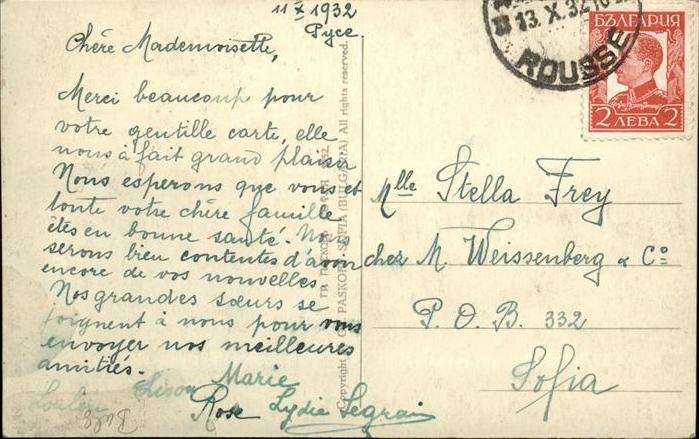 11 X 1932
Русе
Chère Mademoiselle,
Merci beaucoup pour
votre gentille carte, elle
nous à fait grand plaisir
Nous esperons que vous et
toute votre chère famille
êtes en bonne santé. Nous
serons bien contentes d'avoir
encore de vos nouvelles
Nos grandes sœurs se
joignent à nous pour vous
envoyer nos meilleures
amitiés.
Marie
Lison
Rose Lydie
Copyright PASKOFF SOFIA (BULGARIA) All rights reserved.
13. X. 32
ROUSSE
БЪЛГАРИЯ
2 ЛЕВА 2
Mlle Stella Frey
chez M. Weissenberg & Co
P. O. B. 332
Sofia